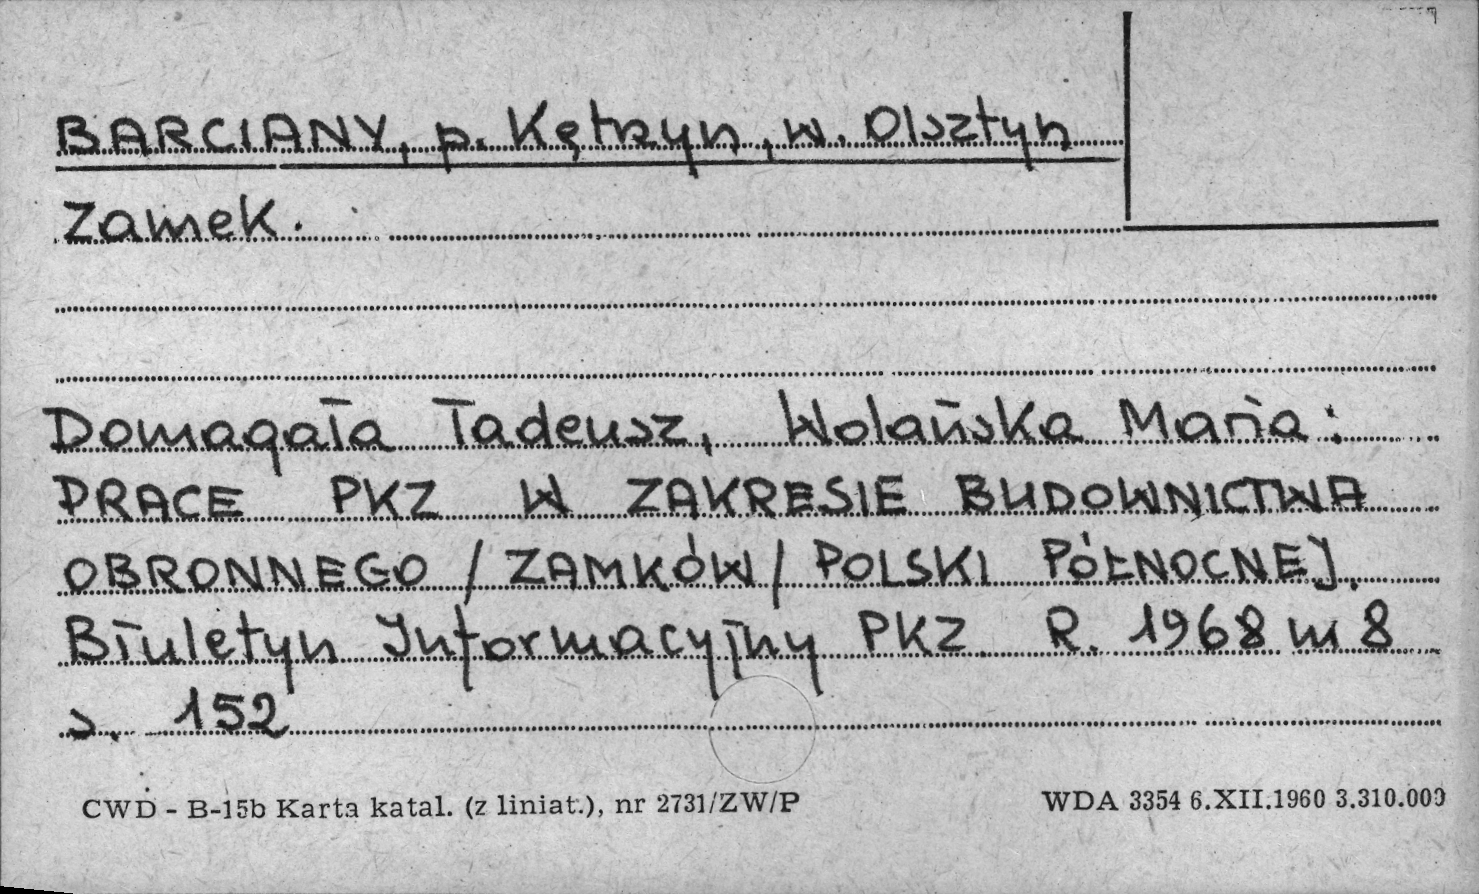 BARCIANY, p. Kętrzyn, w. Olsztyn
Zamek.
Domagała Tadeusz, Wolańska Maria:
PRACE PKZ W ZAKRESIE BUDOWNICTWA
OBRONNEGO /ZAMKÓW/ POLSKI PÓŁNOCNEJ.
Biuletyn Informacyjny PKZ R. 1968 nr 8
s. 152
CWD - B-15b Karta katal. (z liniat.), nr 2731/ZW/P
WDA 3354 6.XII.1960 3.310.000